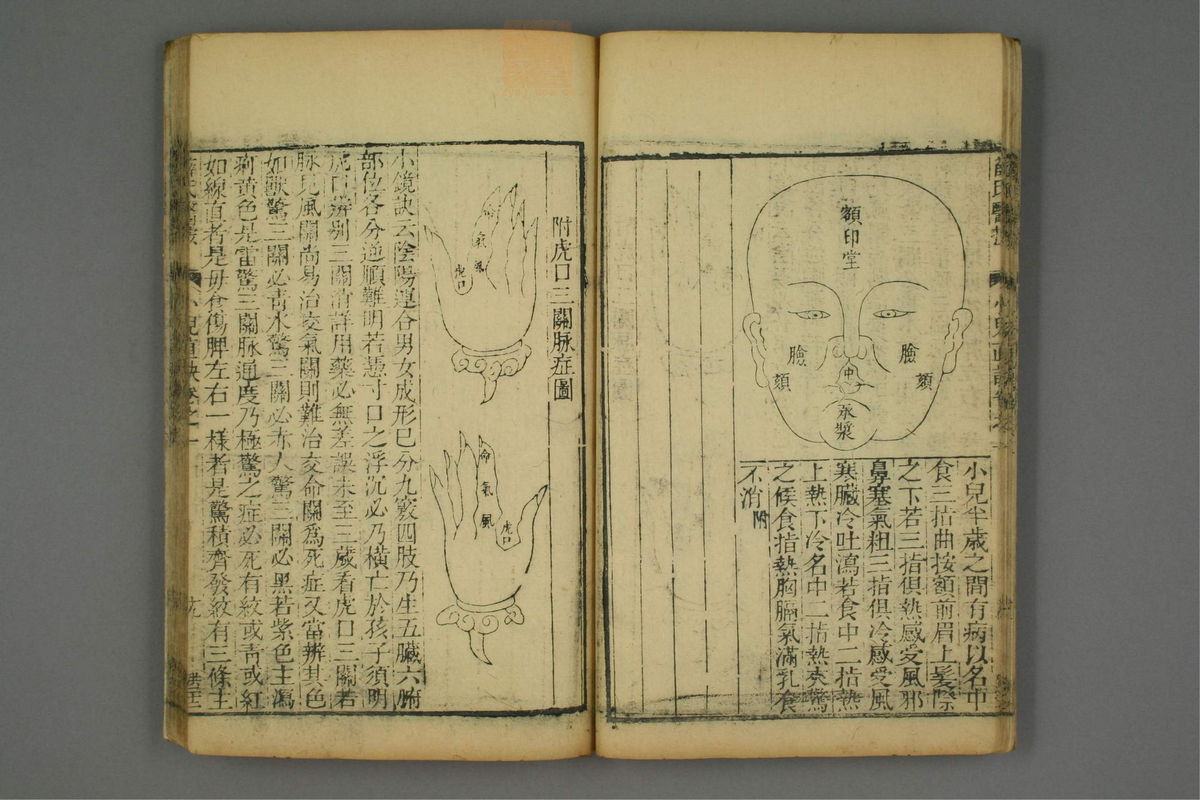 額印堂
臉
臉
頦
頦
冲
承漿
小兒半歲之間有病以名中
食三指曲按額前眉上髮際
之下若三指俱熱感受風邪
鼻塞氣粗三指俱冷感受風
寒臟冷吐瀉若食中二指熱
上熱下冷名中二指熱夾驚
之候食指熱胸膈氣滿乳食
不消 附
附虎口三關脉症圖
命
氣
風
虎口
命
氣
風
虎口
小鏡訣云陰陽運合男女成形已分九竅四肢乃生五臟六腑
部位各分逆順難明若憑寸口之浮沉必乃橫亡於孩子須明
虎口辨別三關消詳用藥必無差誤未至三歲看虎口三關若
脉見風關尚易治交氣關則難治交命關爲死症又當辨其色
如獸驚三關必青水驚三關必赤人驚三關必黑若紫色主瀉
痢黄色是雷驚三關脉通度乃極驚之症必死有紋或青或紅
如線直者是母食傷脾左右一樣者是驚積齊發紋有三條主
薛氏醫案
小兒直訣卷之一